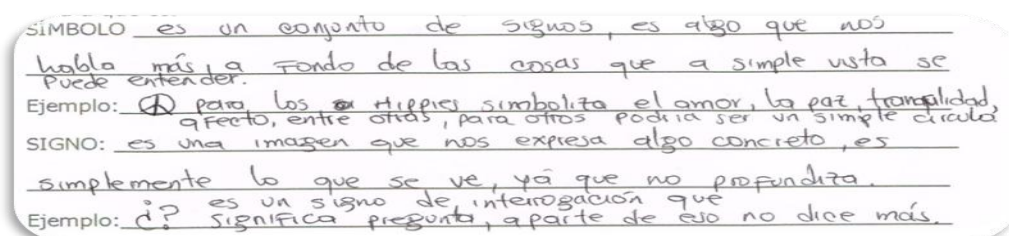 SÍMBOLO es un conjunto de signos, es algo que nos
habla más a Fondo de las cosas que a simple vista se
Puede entender.
Ejemplo: ☮ para los Hippies simboliza el amor, la paz, tranqilidad,
afecto, entre otras, para otros podria ser un simple circulo
SIGNO: es una imagen que nos expresa algo concreto, es
simplemente lo que se ve, yá que no profundiza.
es un signo de interrogación que
Ejemplo: ¿? significa pregunta, aparte de eso no dice más.